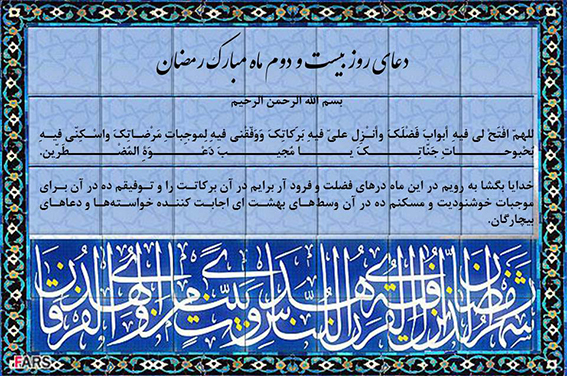 دعای روز بیست و دوم ماه مبارک رمضان
بسم الله الرحمن الرحیم
اللهمّ افْتَحْ لی فیهِ أبوابَ فَضْلَکَ وأنـْزِل علیّ فیهِ بَرَکاتِکَ وَوَفّقْنی فیهِ لِموجِباتِ مَرْضاتِکَ واسْکِنّی فیهِ
بُحْبوحاتِ جَنّاتِکَ یا مُجیبَ دَعْوَةِ المُضْطَرّین.
خدایا بگشا به رویم در این ماه درهای فضلت و فرود آر برایم در آن برکاتت را و توفیقم ده در آن برای
موجبات خوشنودیت و مسکنم ده در آن وسط‌های بهشت ای اجابت کننده خواسته‌ها و دعاهای
بیچارگان.
شهر رمضان الذی انزل فیه القرآن هدی للناس و بینت من الهدی و الفرقان
FARS